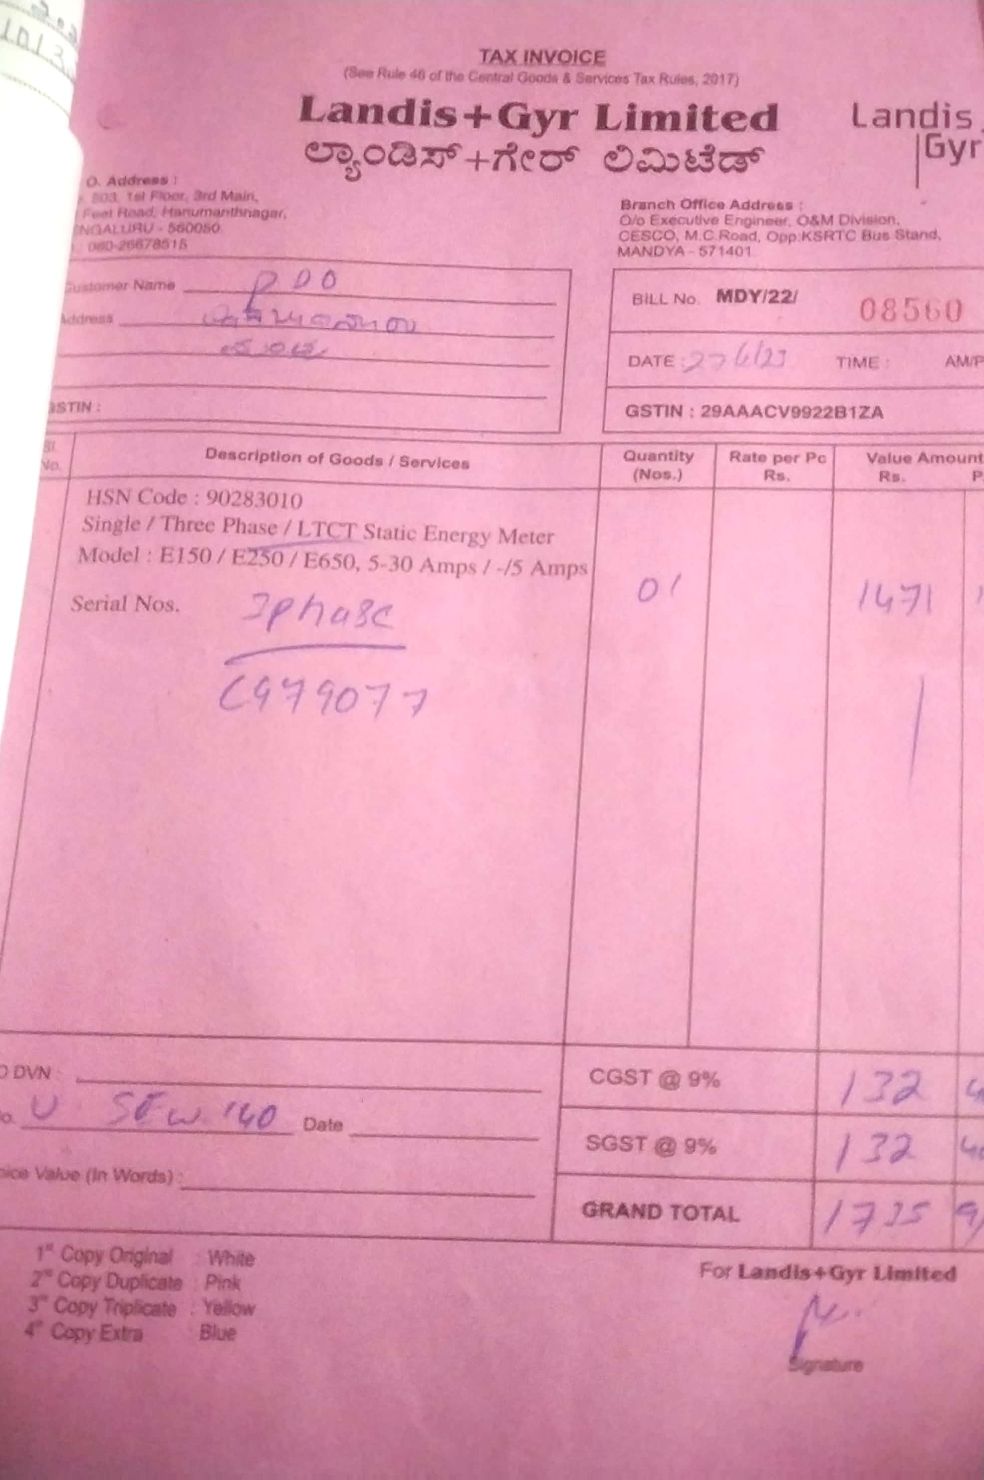 TAX INVOICE
(See Rule 46 of the Central Goods & Services Tax Rules, 2017)
Landis+Gyr Limited
ಲ್ಯಾಂಡಿಸ್+ಗೇರ್ ಲಿಮಿಟೆಡ್
Landis
Gyr
O. Address :
503, 1st Floor, 3rd Main,
Feet Road, Hanumanthnagar,
NGALURU - 560050
080-26678515
Branch Office Address :
O/o Executive Engineer, O&M Division,
CESCO, M.C.Road, Opp.KSRTC Bus Stand,
MANDYA - 571401
ustomer Name PDO
Address
STIN :
BILL No. MDY/22/ 08560
DATE : 27/6/23 TIME : AM/P
GSTIN : 29AAACV9922B1ZA
Sl. No. Description of Goods / Services Quantity (Nos.) Rate per Pc Rs. Value Amount Rs. P
HSN Code : 90283010
Single / Three Phase / LTCT Static Energy Meter
Model : E150 / E250 / E650, 5-30 Amps / -/5 Amps
01 1471
Serial Nos. 3phase
C979077
DVN :
CGST @ 9% 132
o. Date
SGST @ 9% 132
oice Value (In Words) :
GRAND TOTAL 1735
1st Copy Original : White
2nd Copy Duplicate : Pink
3rd Copy Triplicate : Yellow
4th Copy Extra : Blue
For Landis+Gyr Limited
Signature